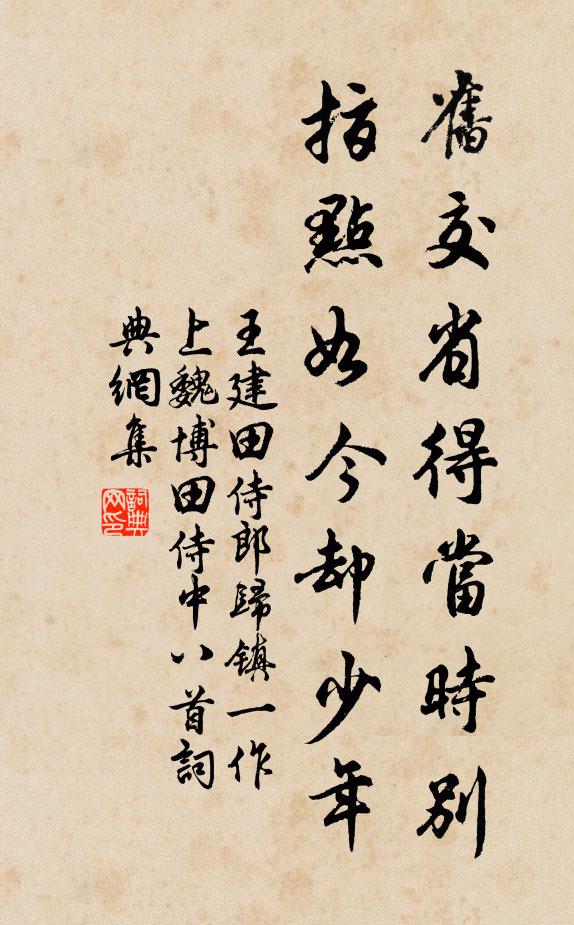 舊交省得當時別
指點如今却少年
王建田侍郎歸鎮一作
上魏博田侍中八首詞
典網集
詞典網印